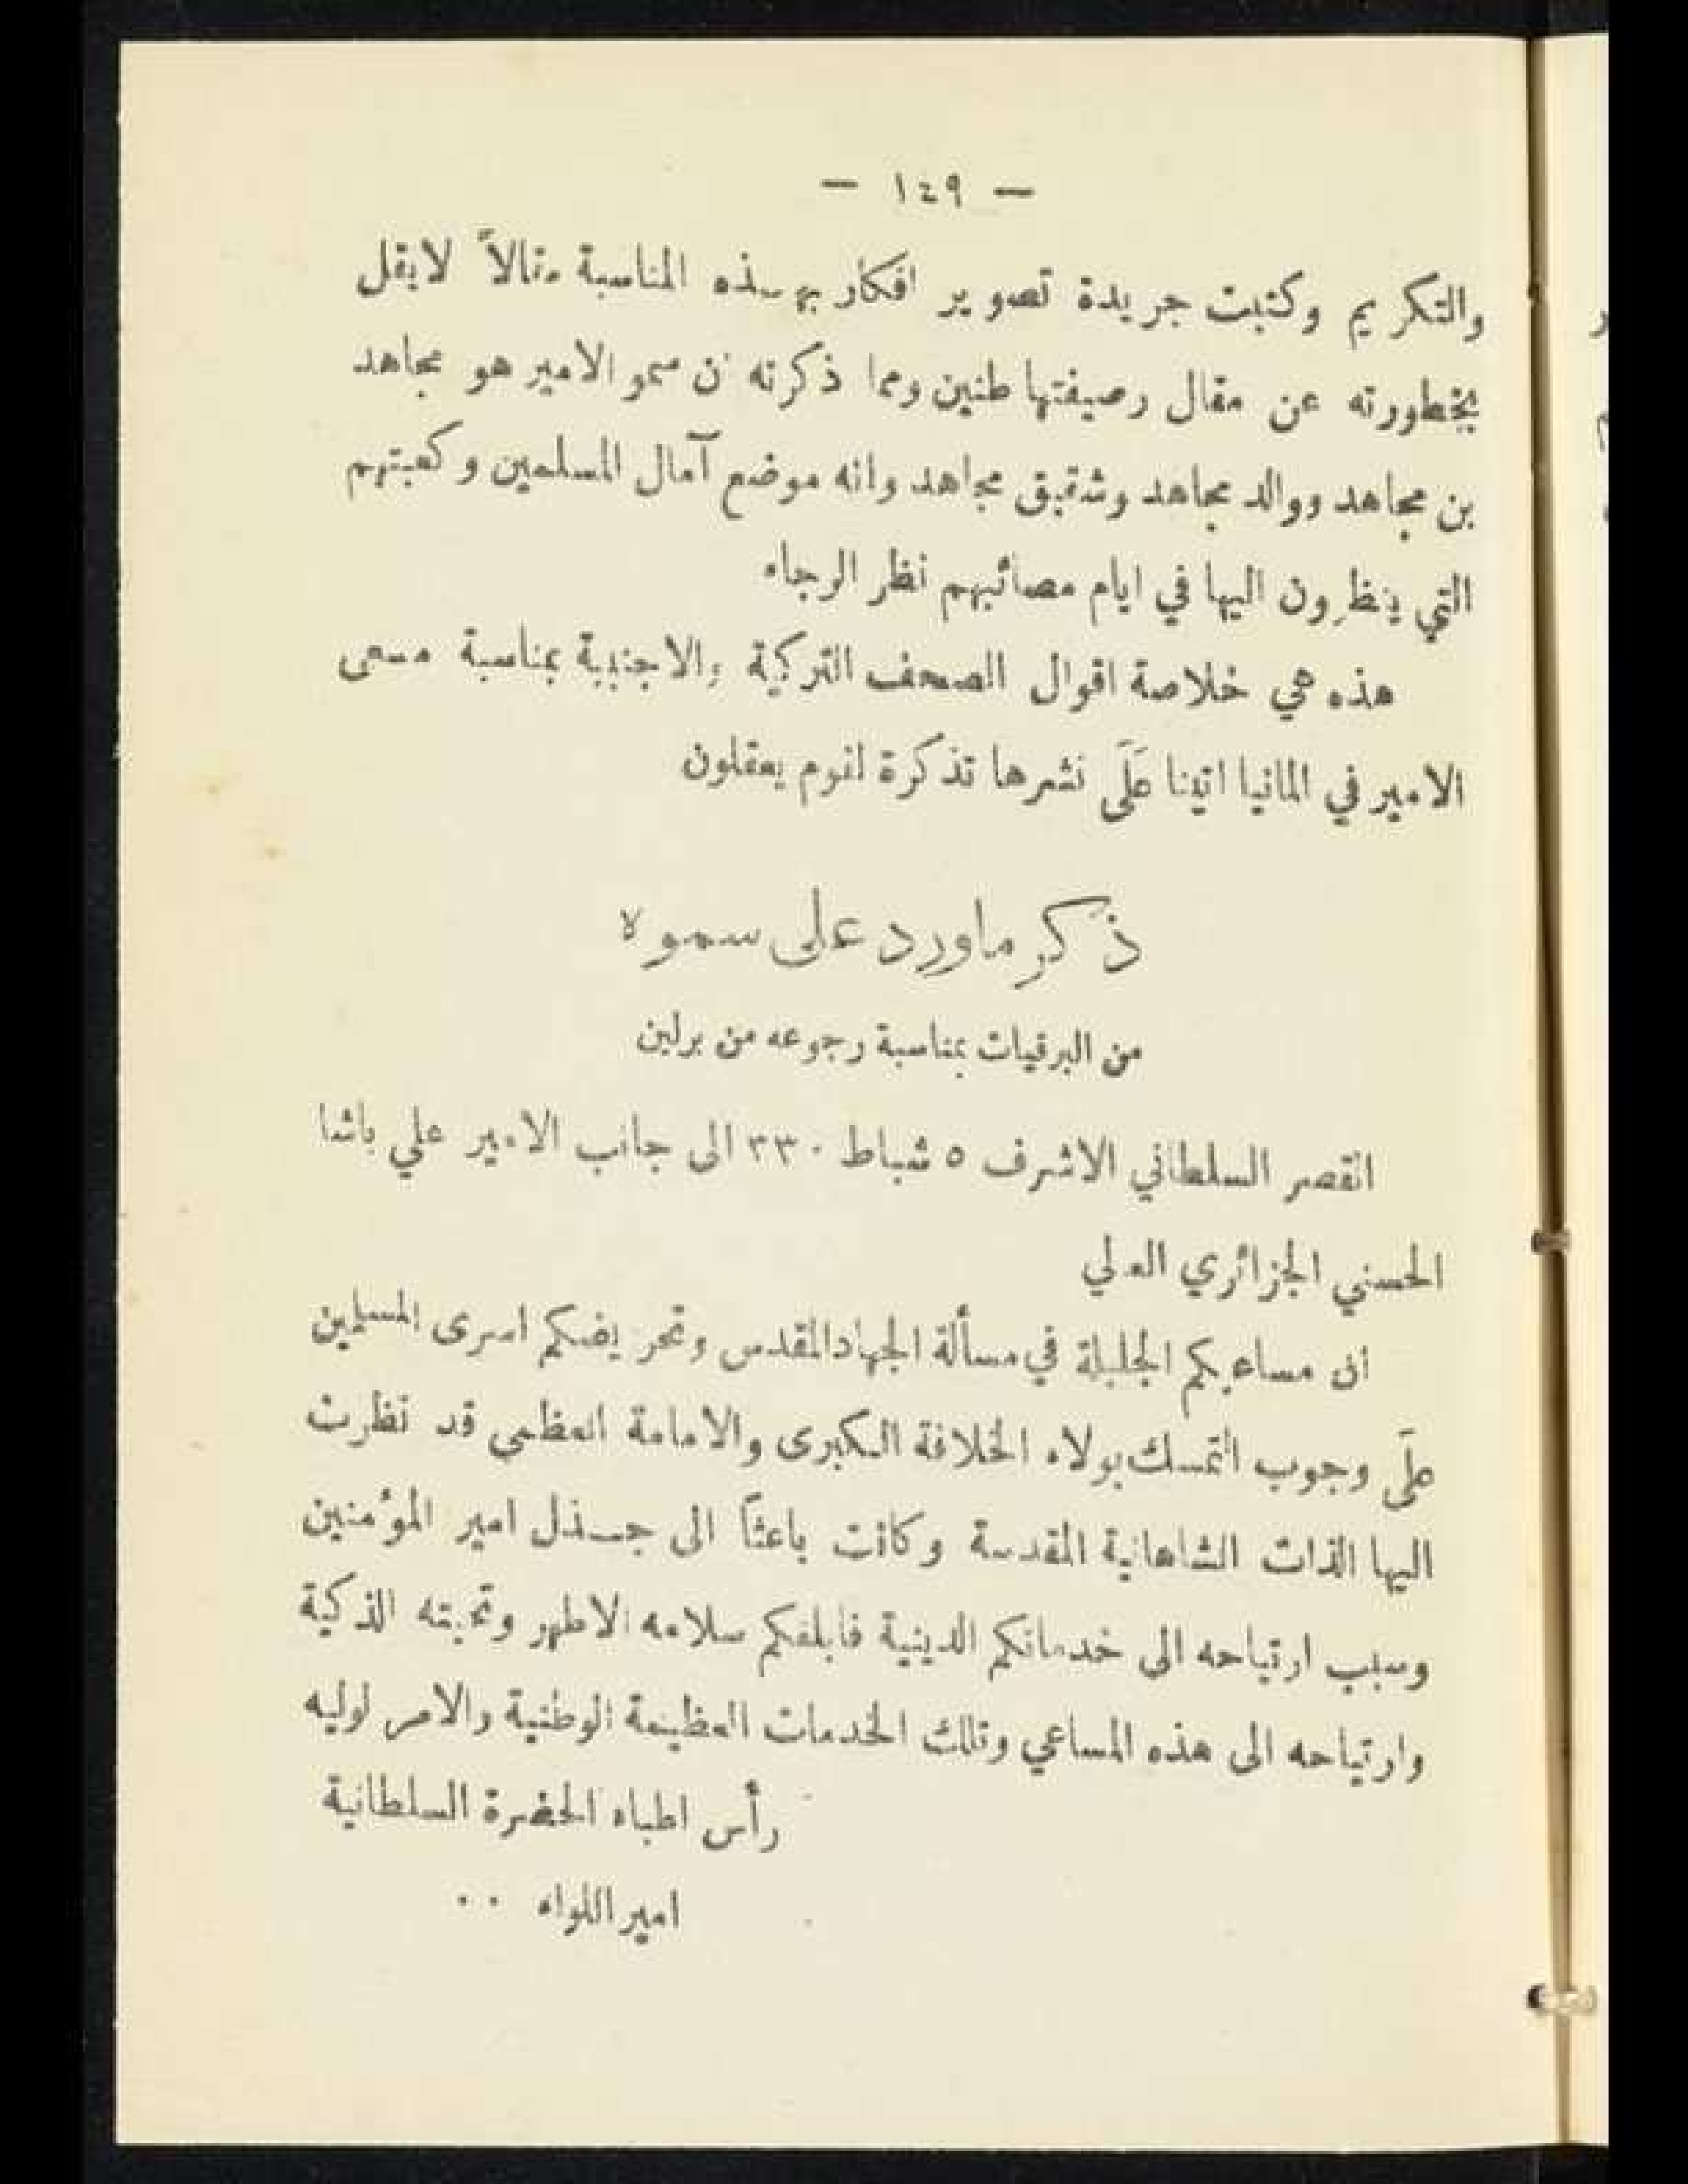 — ١٤٩ —
والتكريم وكتبت جريدة تصوير افكار بهذه المناسبة مقالاً لايقل
بخطورته عن مقال رصيفتها طنين ومما ذكرته ان سمو الامير هو مجاهد
بن مجاهد ووالد مجاهد وشقيق مجاهد وانه موضع آمال المسلمين وكعبتهم
التي ينظرون اليها في ايام مصائبهم نظر الرجاء
هذه هي خلاصة اقوال الصحف التركية والاجنبية بمناسبة مسعى
الامير في المانيا اتينا عَلَى نشرها تذكرة لقوم يعقلون
ذكر ماورد على سموه
من البرقيات بمناسبة رجوعه من برلين
القصر السلطاني الاشرف ٥ شباط ٣٣٠ الى جانب الامير علي باشا
الحسني الجزائري العلي
ان مساعيكم الجليلة في مسألة الجهاد المقدس وتحريضكم اسرى المسلمين
عَلَى وجوب التمسك بولاء الخلافة الكبرى والامامة العظمى قد نظرت
اليها الذات الشاهانية المقدسة وكانت باعثاً الى جذل امير المؤمنين
وسبب ارتياحه الى خدماتكم الدينية فابلغكم سلامه الاطهر وتحيته الذكية
وارتياحه الى هذه المساعي وتلك الخدمات العظيمة الوطنية والامر لوليه
رأس اطباء الحضرة السلطانية
امير اللواء ٠٠